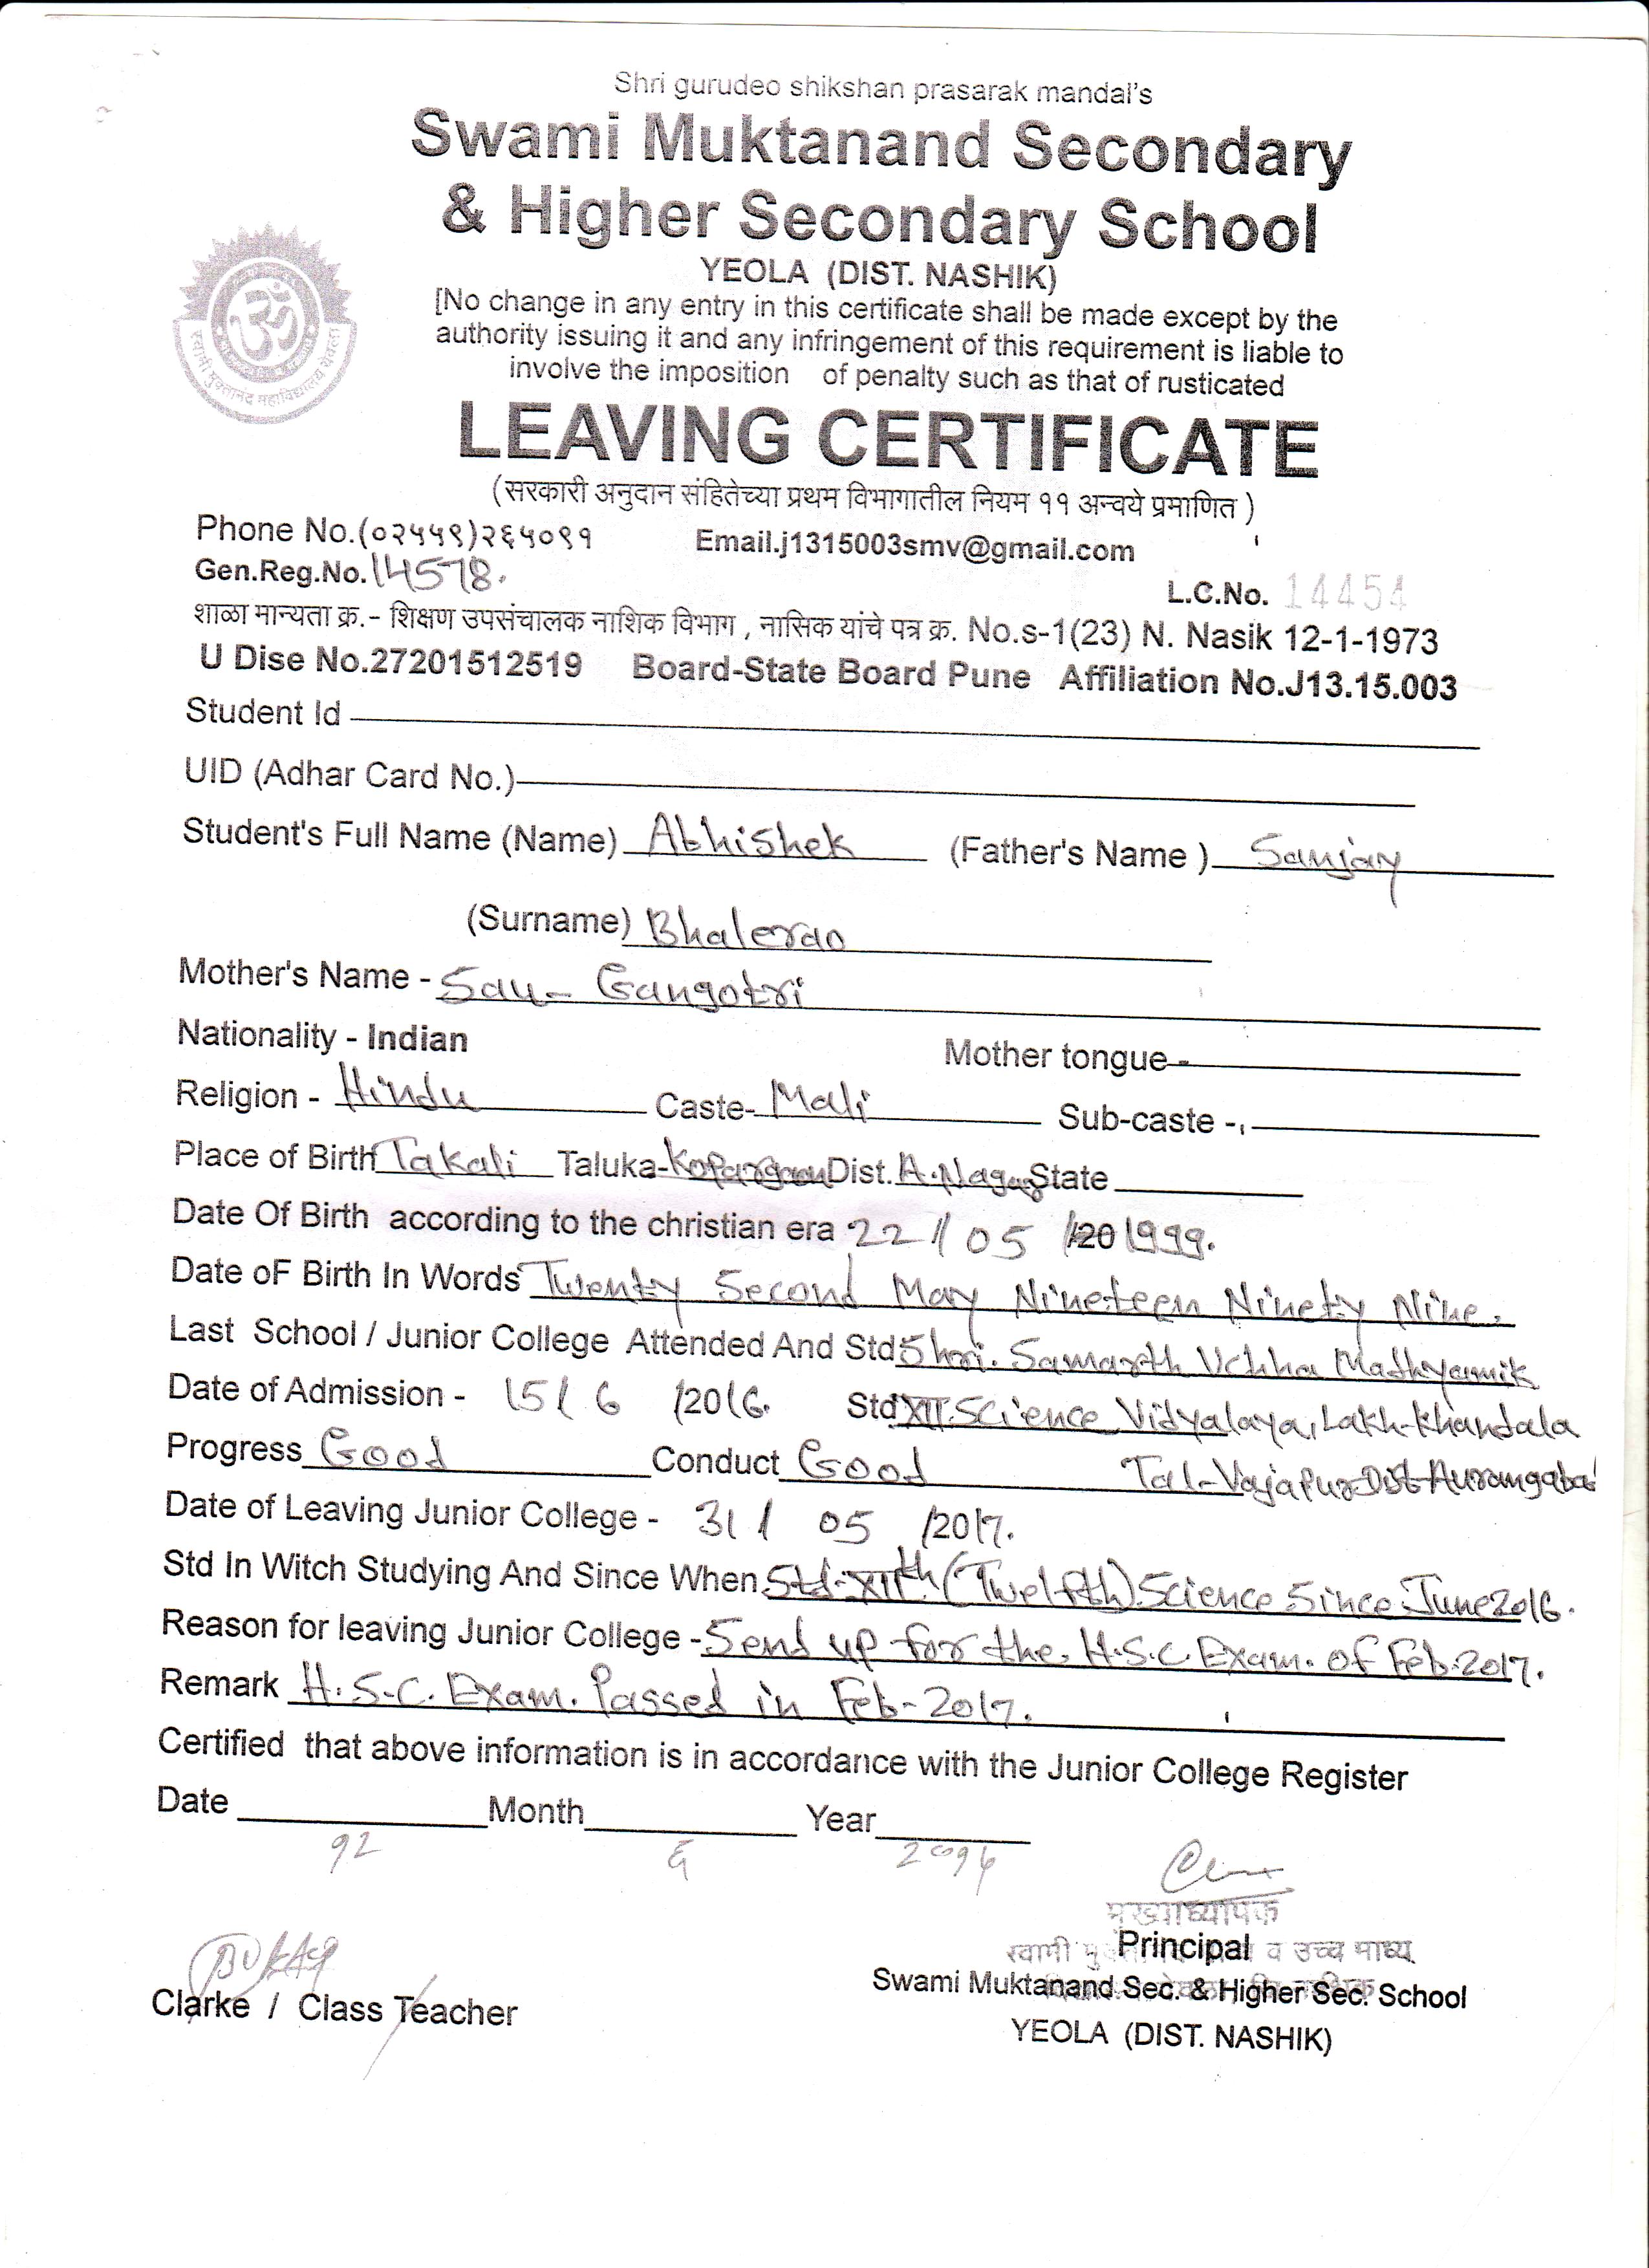 Shri gurudeo shikshan prasarak mandal's
Swami Muktanand Secondary
& Higher Secondary School
YEOLA (DIST. NASHIK)
[No change in any entry in this certificate shall be made except by the
authority issuing it and any infringement of this requirement is liable to
involve the imposition of penalty such as that of rusticated
स्वामी मुक्तानंद महाविद्यालय येवला
LEAVING CERTIFICATE
(सरकारी अनुदान संहितेच्या प्रथम विभागातील नियम ११ अन्वये प्रमाणित )
Phone No.(०२५५९)२६५०९१ Email.j1315003smv@gmail.com
Gen.Reg.No. 14578. L.C.No. 14454
शाळा मान्यता क्र.- शिक्षण उपसंचालक नाशिक विभाग , नासिक यांचे पत्र क्र. No.s-1(23) N. Nasik 12-1-1973
U Dise No.27201512519 Board-State Board Pune Affiliation No.J13.15.003
Student Id
UID (Adhar Card No.)
Student's Full Name (Name) Abhishek (Father's Name ) Sanjay
(Surname) Bhalerao
Mother's Name - Sau- Gangotri
Nationality - Indian Mother tongue-
Religion - Hindu Caste- Mali Sub-caste -
Place of Birth Takali Taluka- Kopargaon Dist. A.Nagar State
Date Of Birth according to the christian era 22 / 05 /20 1999.
Date oF Birth In Words Twenty Second May Nineteen Ninety Nine.
Last School / Junior College Attended And Std Shri. Samarth Uchha Madhyamik
Date of Admission - 15/ 6 /2016. Std XII.Science Vidyalaya, Lakh-khandala
Progress Good Conduct Good Tal-Vajapur-Dist-Aurangabad
Date of Leaving Junior College - 31 / 05 /2017.
Std In Witch Studying And Since When Std-XIIth (Twelfth) Science Since June 2016.
Reason for leaving Junior College - Send up for the H.S.C. Exam. of Feb.2017.
Remark H.S.C. Exam. Passed in Feb-2017.
Certified that above information is in accordance with the Junior College Register
Date Month Year
१२ ६ २०१७
मुख्याध्यापक
Principal
स्वामी व उच्च माध्य
Clarke / Class Teacher
Swami Muktanand Sec. & Higher Sec. School
YEOLA (DIST. NASHIK)